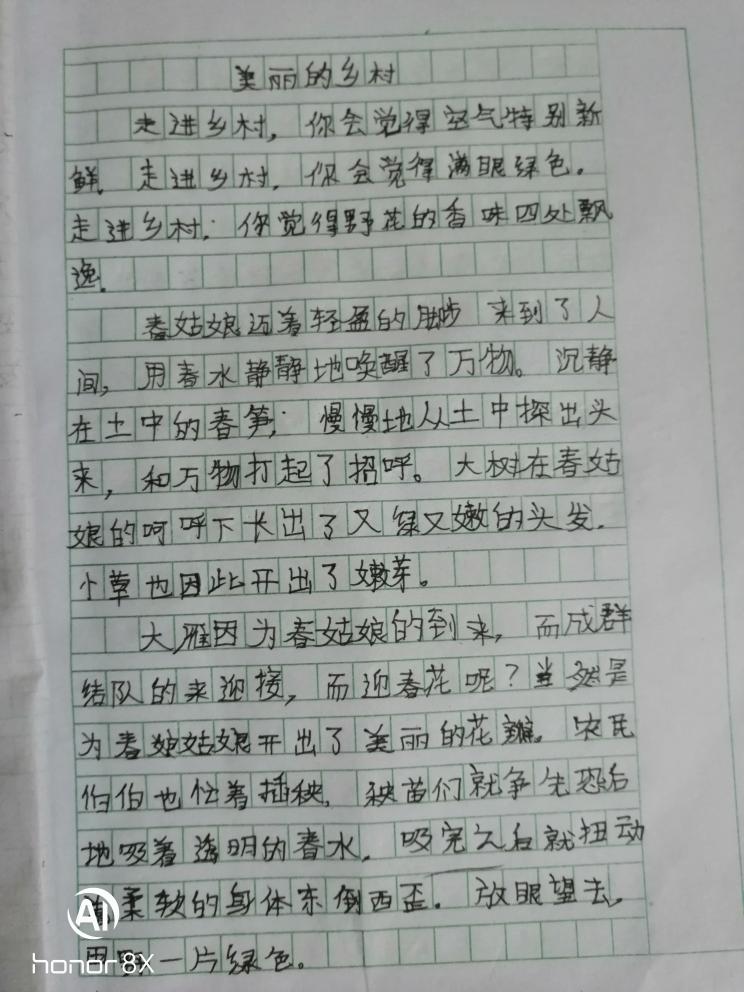 美丽的乡村
走进乡村，你会觉得空气特别新
鲜。走进乡村，你会觉得满眼绿色。
走进乡村，你觉得野花的香味四处飘
逸。
春姑娘迈着轻盈的脚步 来到了人
间，用春水静静地唤醒了万物。沉静
在土中的春笋，慢慢地从土中探出头
来，和万物打起了招呼。大树在春姑
娘的呵呼下长出了又绿又嫩的头发。
小草也因此开出了嫩芽。
大雁因为春姑娘的到来，而成群
结队的来迎接，而迎春花呢？当然是
为春姑娘开出了美丽的花瓣。农民
伯伯也忙着插秧，秧苗们就争先恐后
地吸着透明的春水，吸完之后就扭动
着柔软的身体东倒西歪。放眼望去，
田野一片绿色。
AI
honor 8X